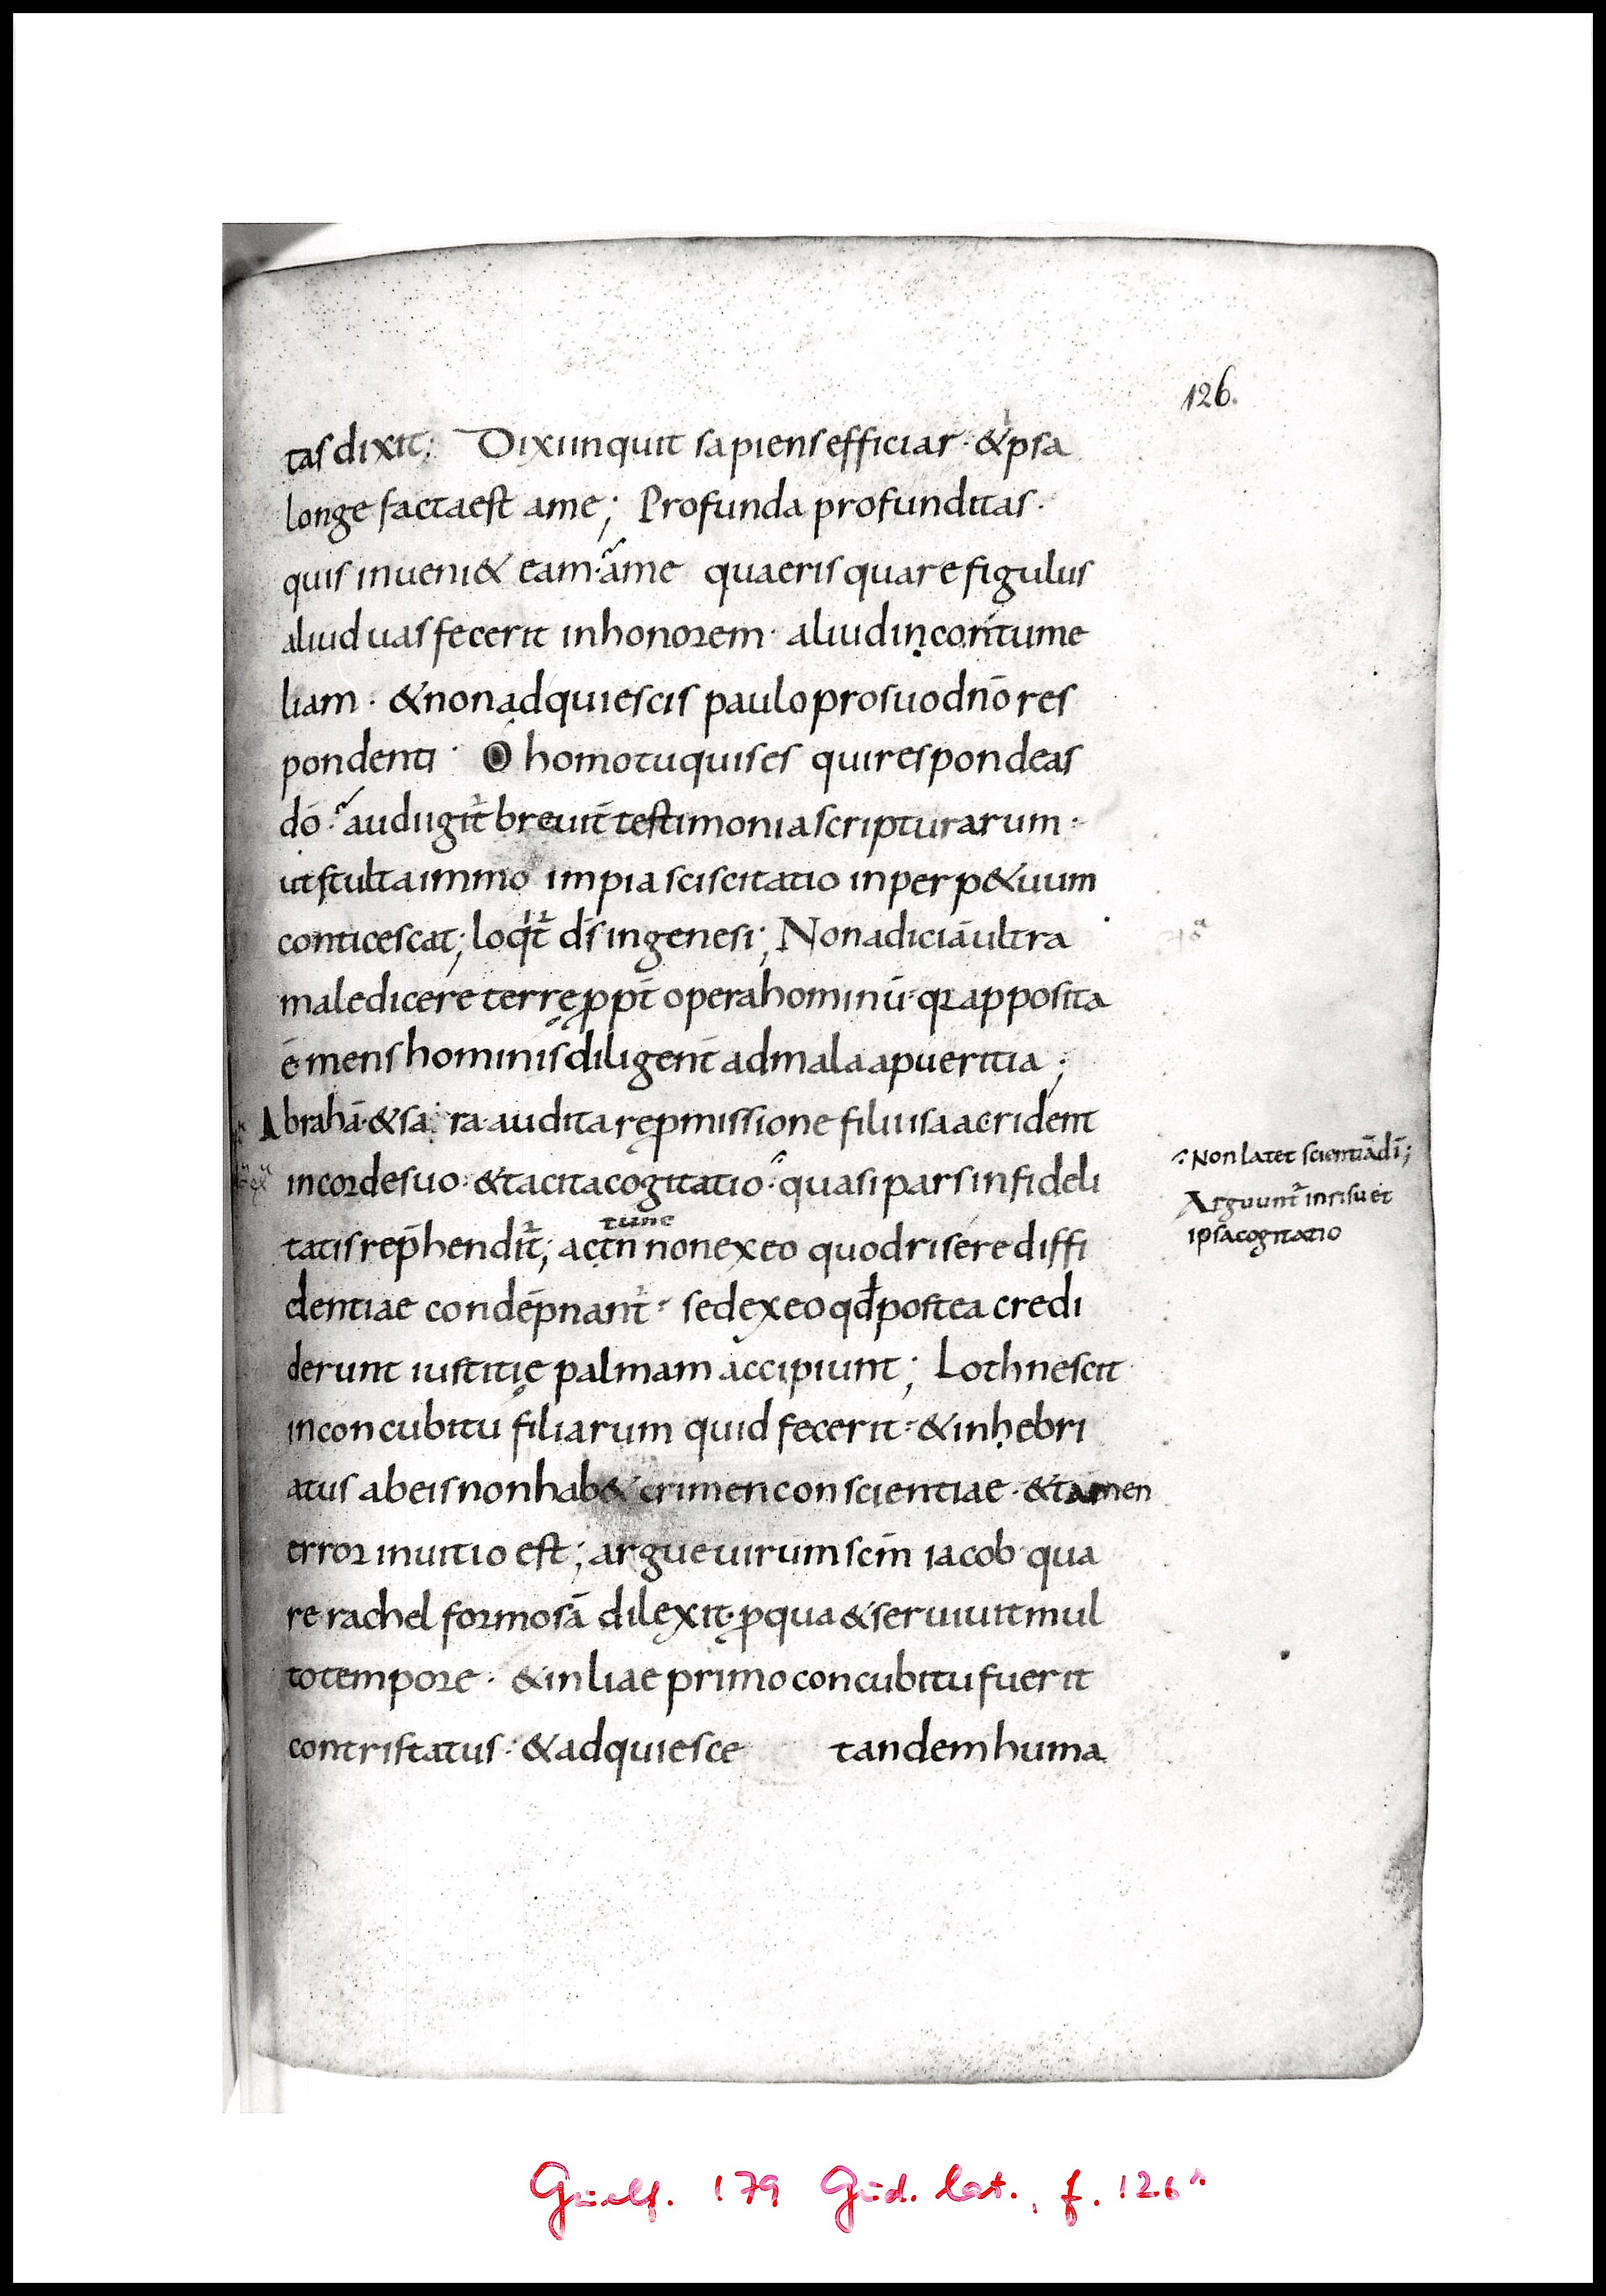 126.
tas dixit; Dixi inquit sapiens efficiar · & ipsa
longe facta est a me; Profunda profunditas ·
quis inueni& eam · a me quaeris quare figulus
aliud uas fecerit in honorem · aliud in contume
liam · & non adquiescis paulo pro suo dn̄o res
pondenti · O homo tu quis es qui respondeas
dō · audi igit̄ breuit̄ testimonia scripturarum ·
ut stulta immo impia sciscitatio in perp&uum
conticescat; loqt̄ d̄s in genesi; Non adiciā ultra
maledicere terrę ꝓpt̄ opera hominū · qa apposita
ē mens hominis diligent̄ ad mala a pueritia;
Abrahā · & sara · audita repmissione filii isaac rident
in corde suo · & tacita cogitatio · quasi pars infideli
Non latet scientiā dī;
tatis rep̄hendit̄; ac tn̄ non ex eo quod risere diffi
tunc
Arguunt̄ in risu et
ipsa cogitatio
dentiae condēpnant̄ · sed ex eo qđ postea credi
derunt iustitię palmam accipiunt; Loth nescit
in concubitu filiarum quid fecerit · & inhebri
atus ab eis non hab& crimen conscientiae · & tamen
error in uitio est; argue uirum scm̄ iacob qua
re rachel formosā dilexit · ꝓ qua & seruiuit mul
to tempore · & in liae primo concubitu fuerit
contristatus · & adquiesce tandem huma
Guelf. 179 Gud. lat., f. 126r